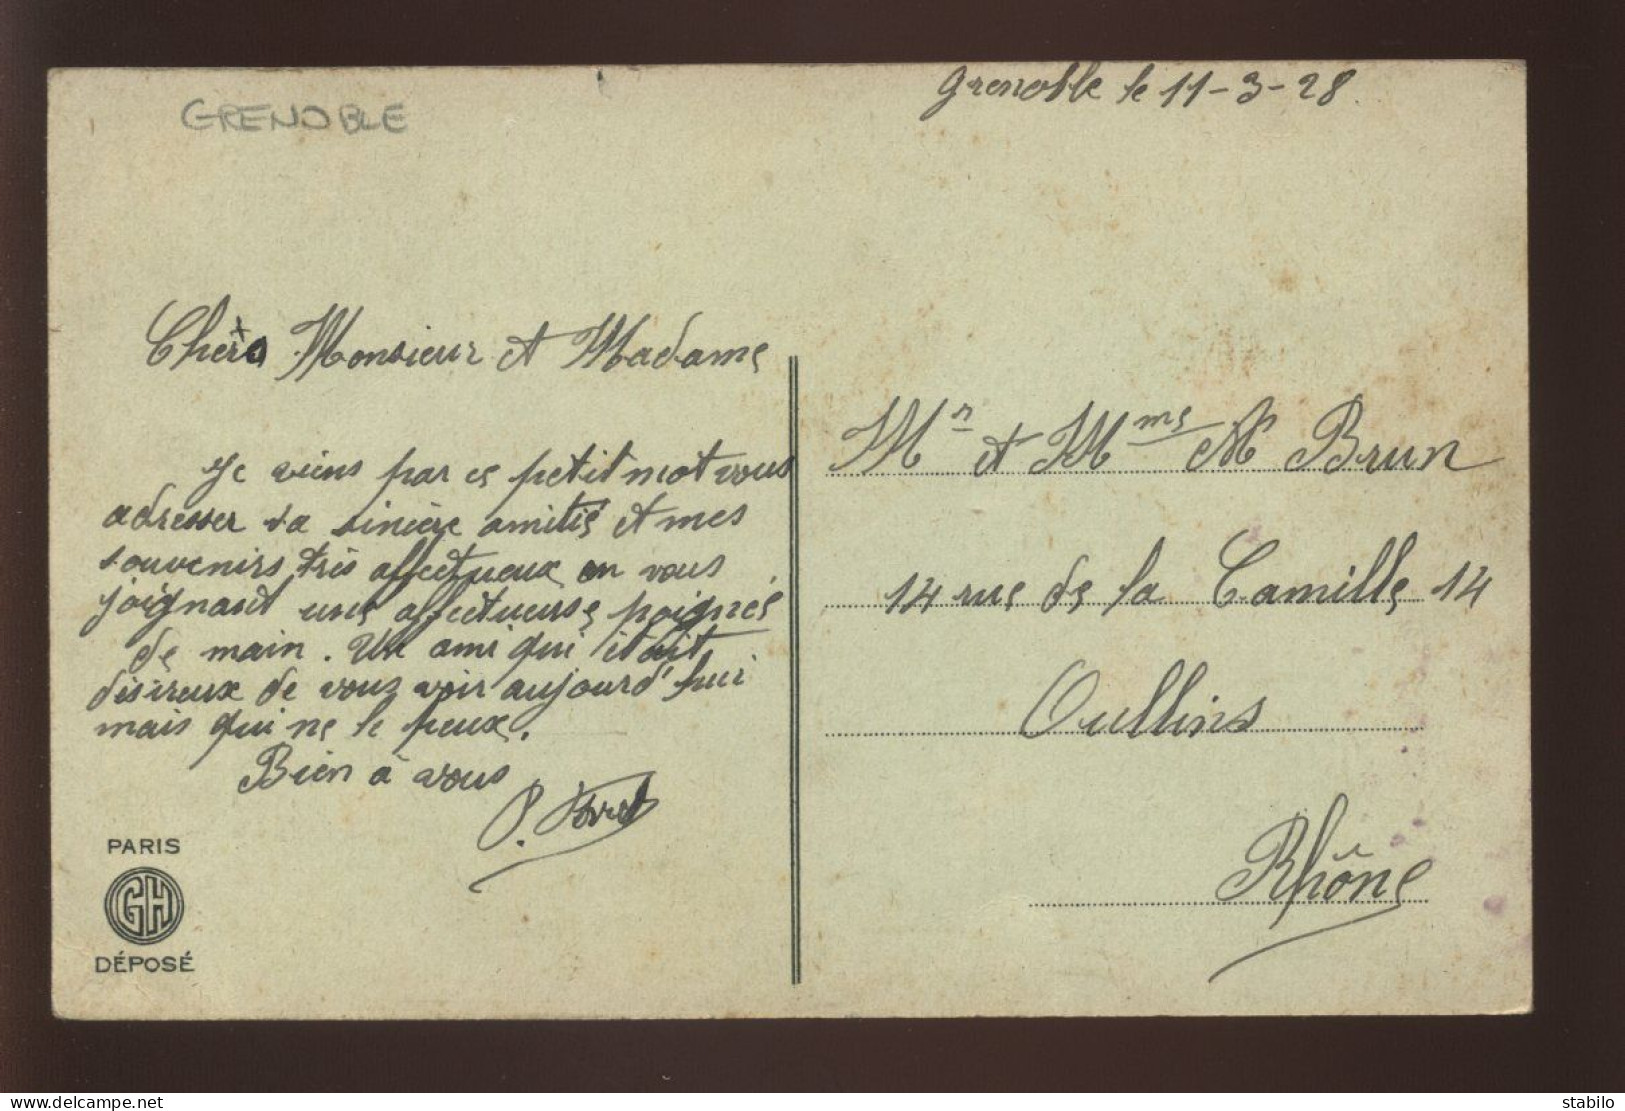 Grenoble le 11-3-28.
GRENOBLE
Chers Monsieur et Madame
Je viens par ce petit mot vous
adresser sa sincère amitié et mes
souvenirs très affectueux en vous
joignant une affectueuse poignés
de main. Un ami qui était
désireux de vous voir aujourd'hui
mais qui ne le peux.
Bien à vous
P.
PARIS
GH
DÉPOSÉ
Mr et Mme M Brun
14 rue de la Camille 14
Oullins
Rhône
stabilo
www.delcampe.net